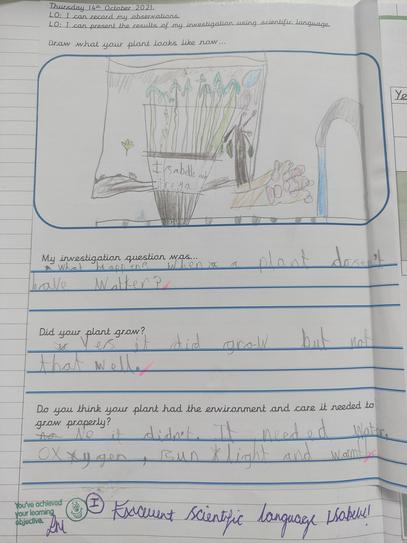 Thursday 14th October 2021.
LO: I can record my observations.
LO: I can present the results of my investigation using scientific language.
Draw what your plant looks like now...
Isabelle and
Freya
Ye
My investigation question was...
what happens when a plant doesn't
have Watter?
Did your plant grow?
Yes it did grow but not
that well.
Do you think your plant had the environment and care it needed to
grow properly?
No it didn't. It needed Water,
Oxygen, Sun light and
You've achieved
your learning
objective.
I Excellent scientific language Isabelle!